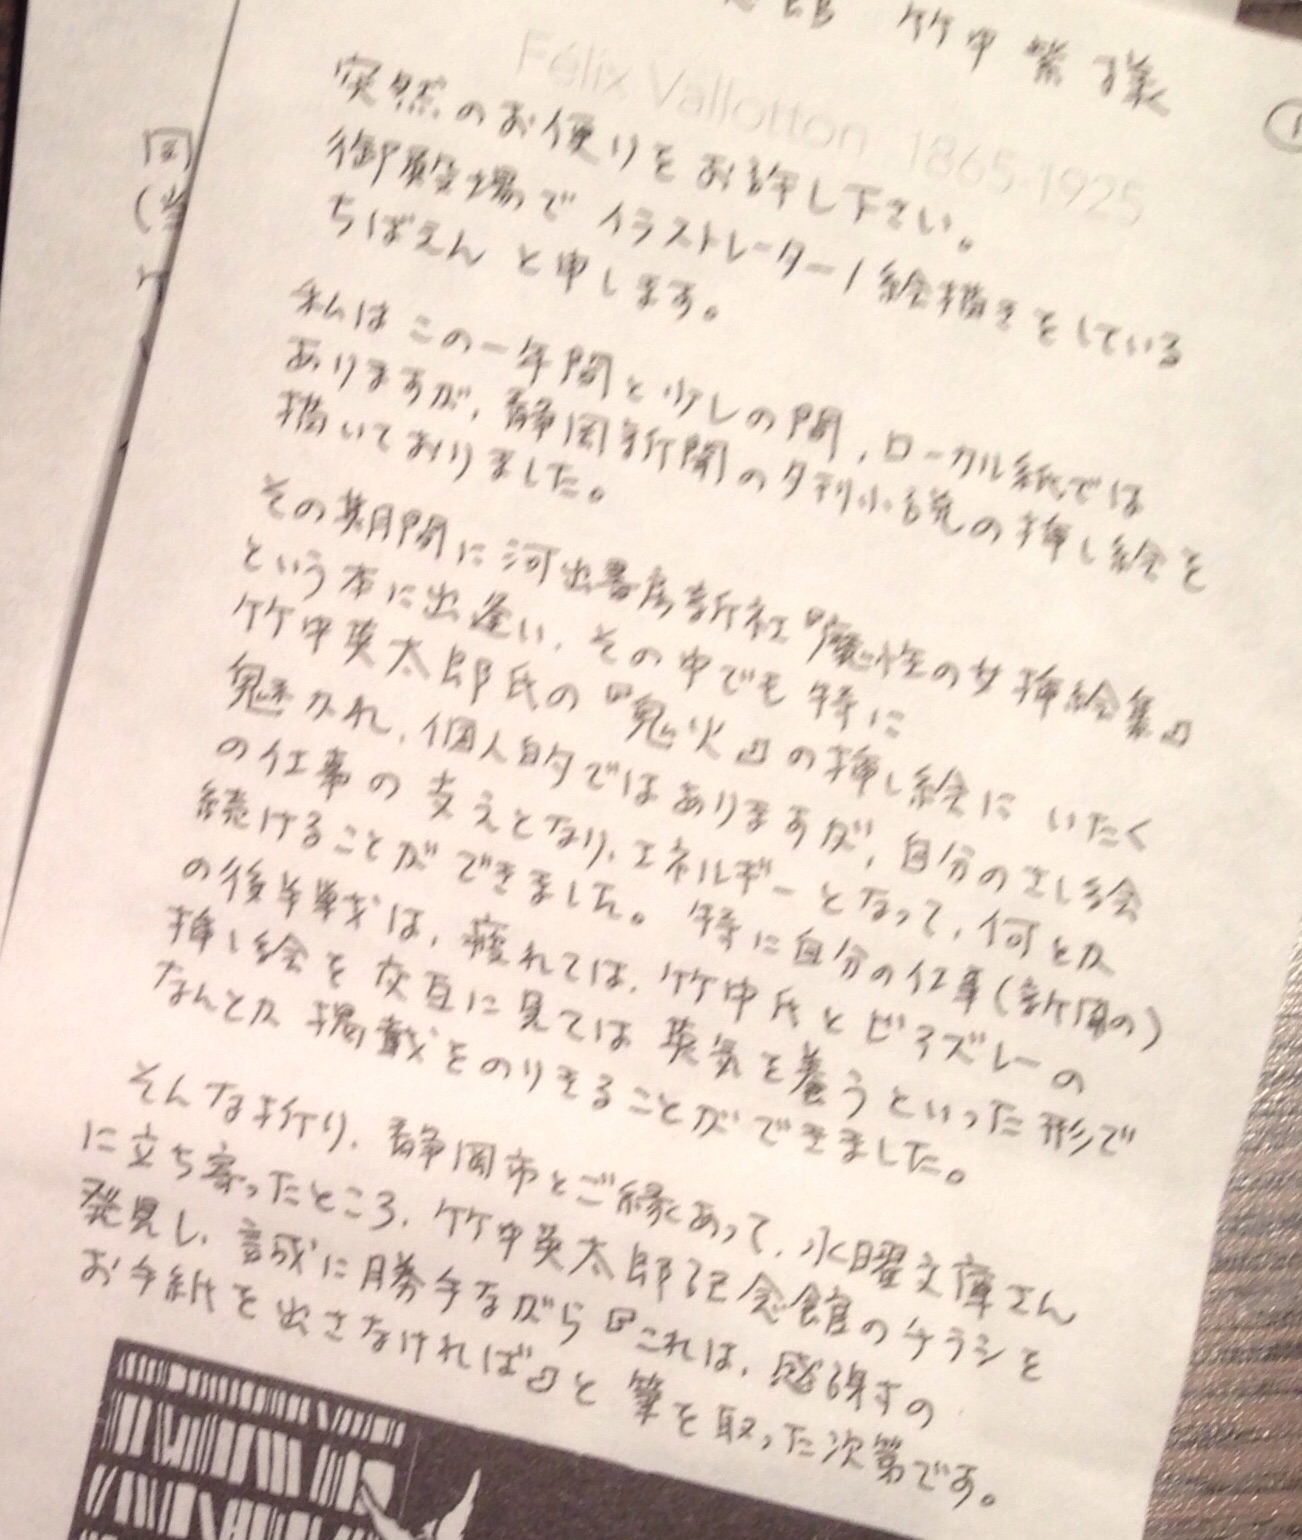 郎 竹中 紫 様
①
Félix Vallotton 1865-1925
突然のお便りをお許し下さい。
御殿場で イラストレーター/絵描きをしている
ちばえん と申します。
私は この一年間と少しの間、ローカル紙では
ありますが、静岡新聞の夕刊小説の挿し絵を
描いておりました。
その期間に河出書房新社『魔性の女挿絵集』
という本に出逢い、その中でも 特に
竹中英太郎氏の『鬼火』の挿し絵に いたく
魅かれ、個人的ではありますが、自分のさし絵
の仕事の 支えとなり、エネルギーとなって、何とか
続けることができました。特に自分の仕事(新聞の)
の後半戦は、疲れては、竹中氏とビアズレーの
挿し絵を交互に見ては 英気を養うといった形で
なんとか 掲載をのりきることができました。
そんな折り、静岡市とご縁あって、水曜文庫さん
に立ち寄ったところ、竹中英太郎記念館のチラシを
発見し、誠に勝手ながら『これは、感謝の
お手紙を出さなければ』と 筆を取った次第です。